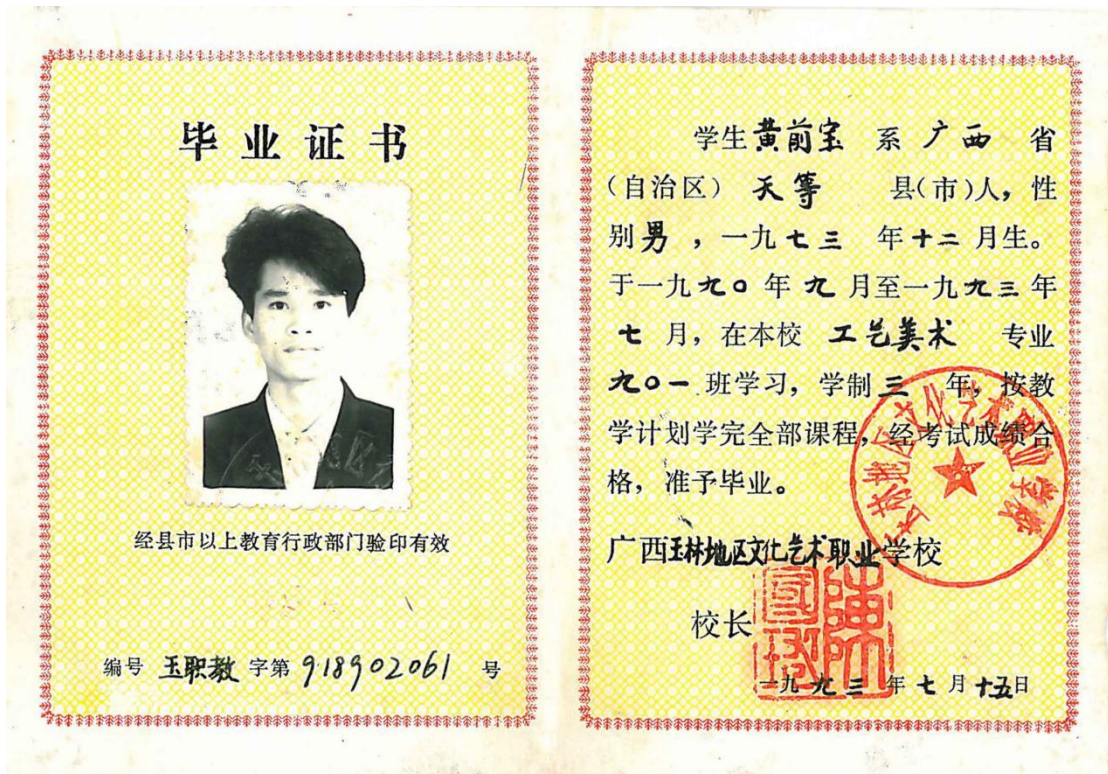 毕业证书
经县市以上教育行政部门验印有效
编号 玉职教 字第 918902061 号
学生黄前宝 系 广西 省
(自治区) 天等 县(市)人，性
别男，一九七三 年十二月生。
于一九九〇年九月至一九九三年
七月，在本校 工艺美术 专业
九〇一班学习，学制三 年，按教
学计划学完全部课程，经考试成绩合
格，准予毕业。
广西玉林地区文化艺术职业学校
校长
一九九三年七月十五日
玉林地区文化艺术职业学校